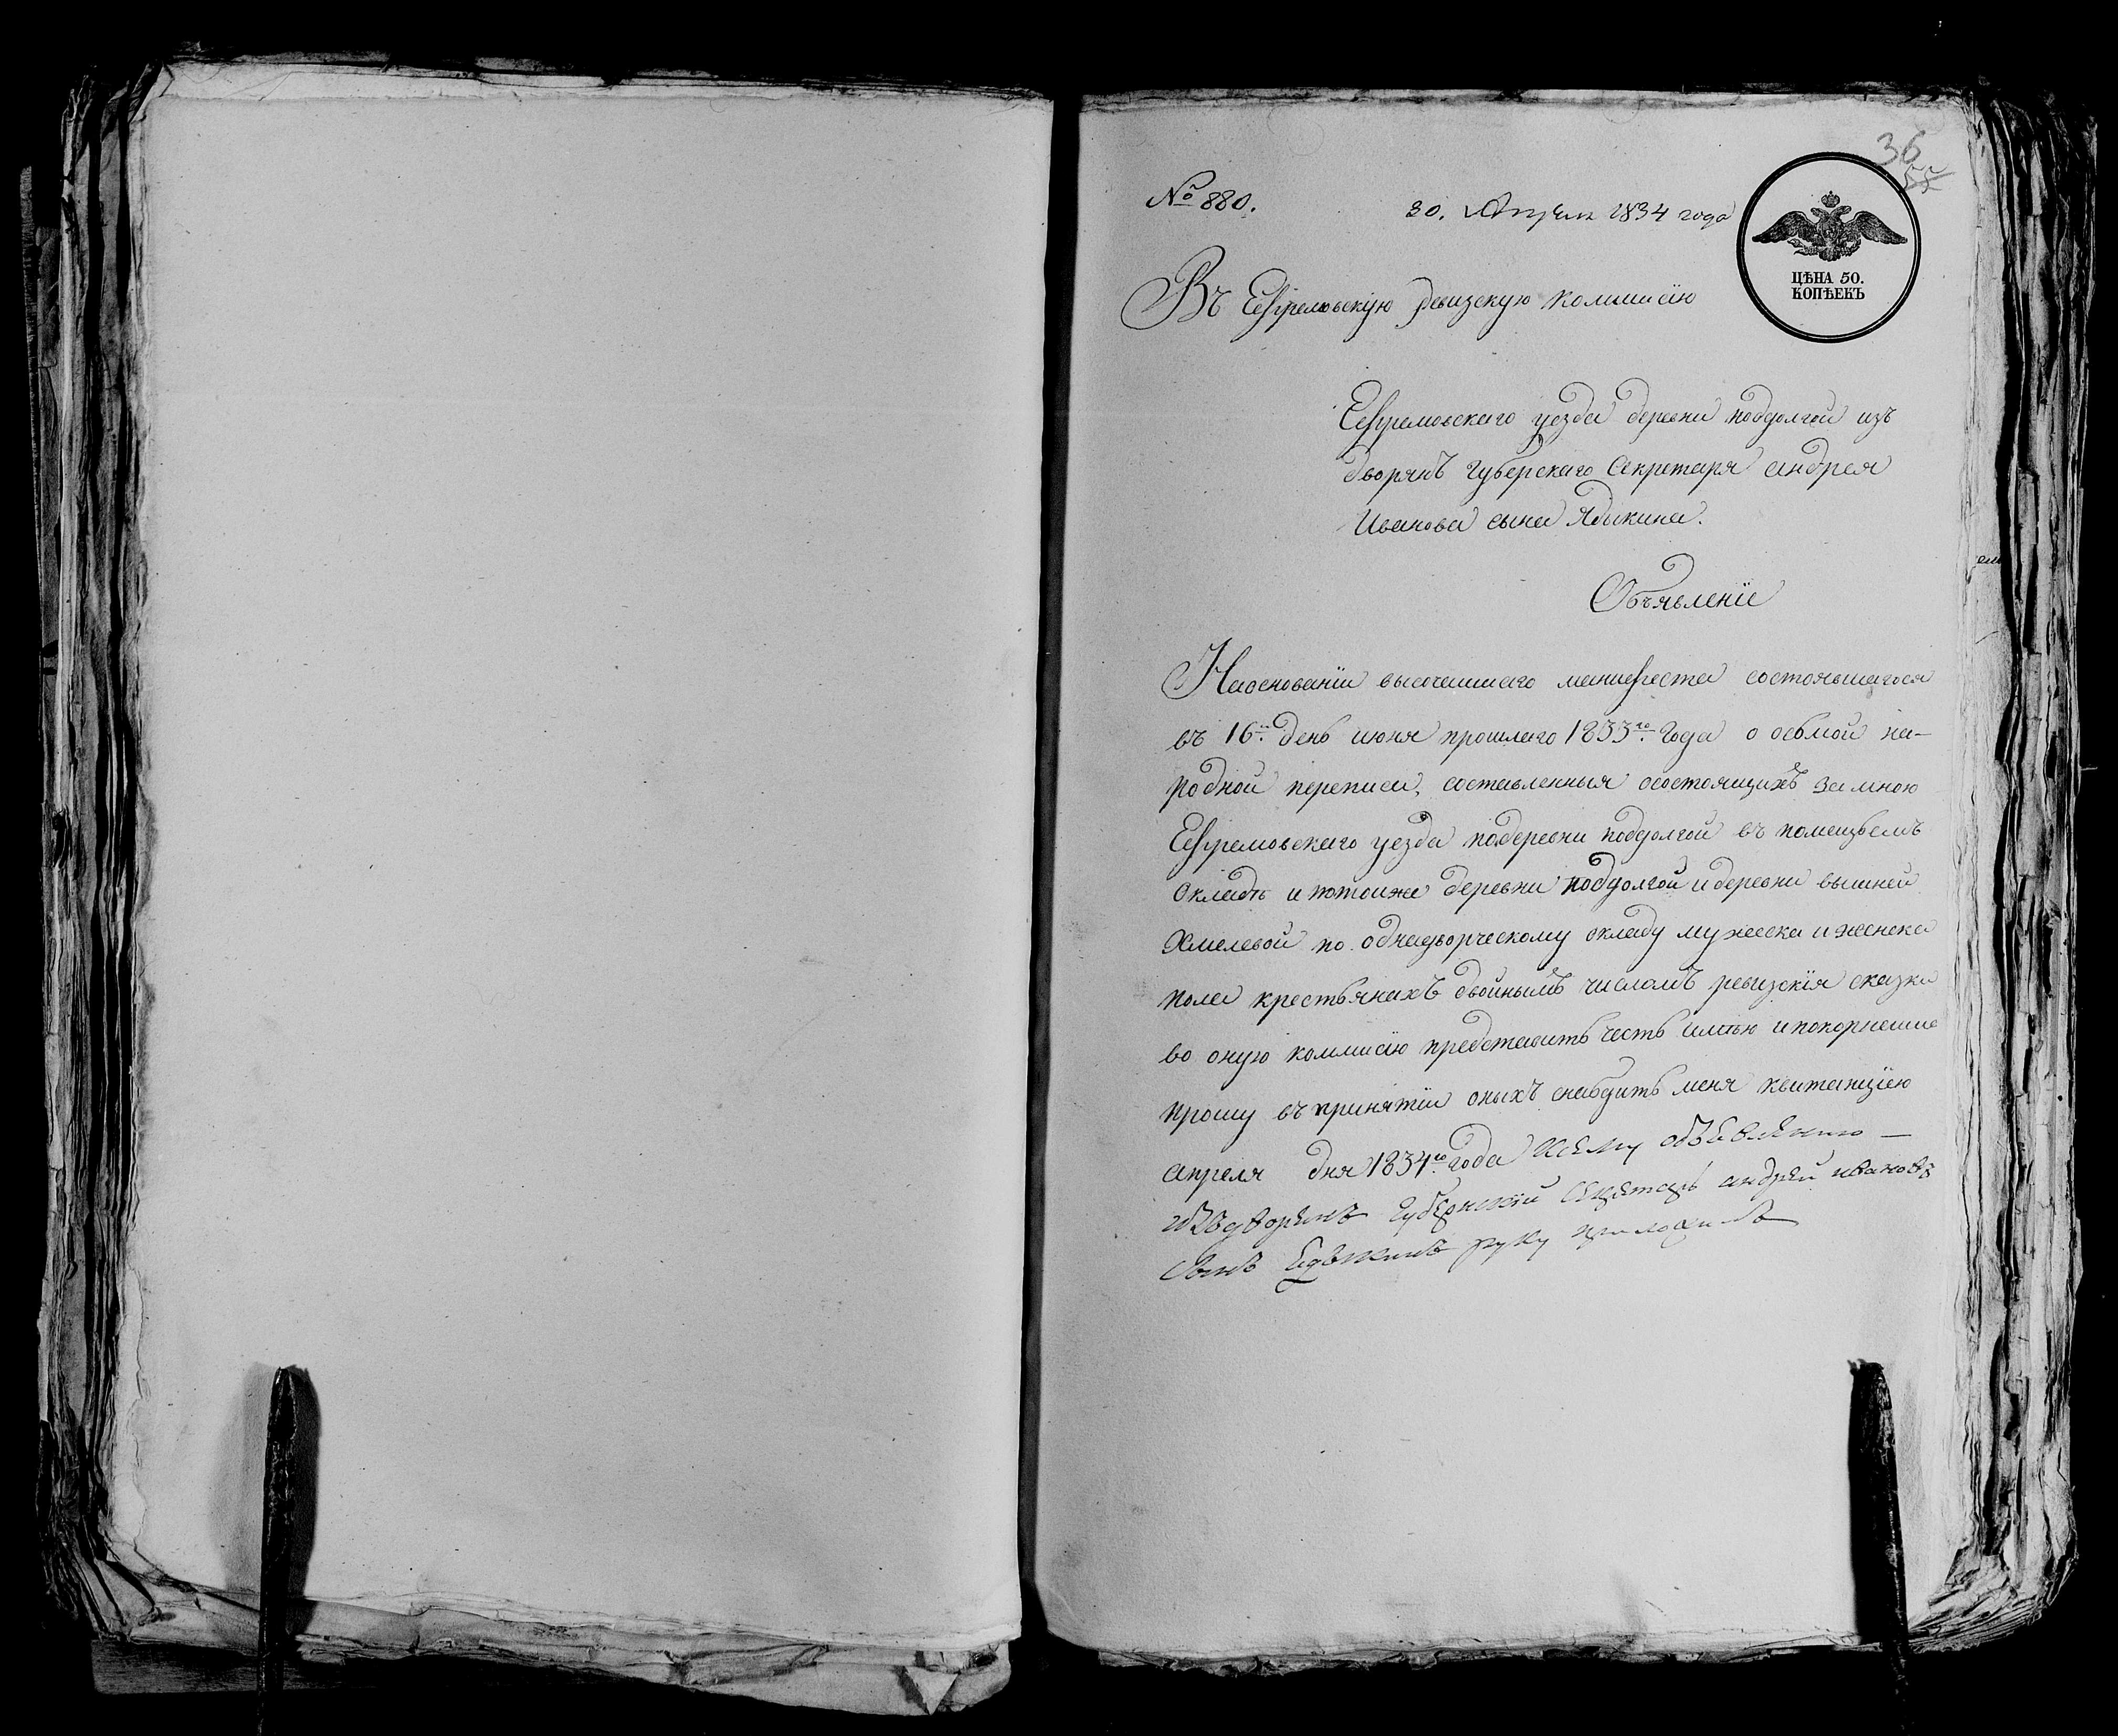 36
№ 880.
30. Апреля 1834 года
ЦѢНА 50.
КОПѢЕКЪ
Въ Ефремовскую ревизскую коммисію
Ефремовскаго уезда деревни подолгой изъ
дворянъ губерскаго Секретаря андрея
Иванова сына Ядыкина.
Объявленіе
Наоснованіи высочаишаго манифеста состоявшагося
въ 16й день июня прошлаго 1833го Года о осьмой на–
родной переписи, составленныя осостоящихъ за мною
Ефремовскаго уезда подеревни подолгой въ помещьемъ
Окладѣ и потоиже деревни подолгой и деревни вышней
Хмелевой по однадворческому окладу мужеска и женска
пола крестьянахъ двойнымъ числомъ ревизскія сказки
во оную коммисію представить честь имѣю и покорнеише
прошу въ принятіи оныхъ снабдить меня квитанціею
апреля дня 1834го года Ксему объевлению —
изъдворянъ Губернский Секретарь андрей ивановъ
Сынъ Едыкинъ руку приложилъ